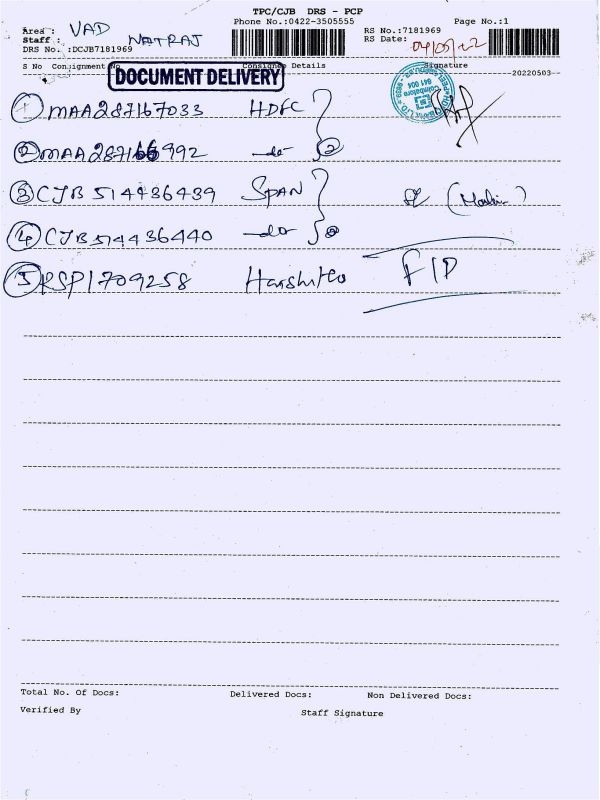 TPC/CJB DRS - PCP
Area : VAD Phone No.:0422-3505555 Page No.:1
Staff : NATRAJ RS No.:7181969
DRS No. :DCJB7181969 RS Date: 04/05/22
S No Consignment No Consignee Details Signature
DOCUMENT DELIVERY --20220503--
1 MAA287167033 HDFC
2 MAA287166992 -do- 2
3 CJB514436439 SPAN
4 CJB514436440 -do-
5 KSP1709258 FID
Total No. Of Docs: Delivered Docs: Non Delivered Docs:
Verified By Staff Signature